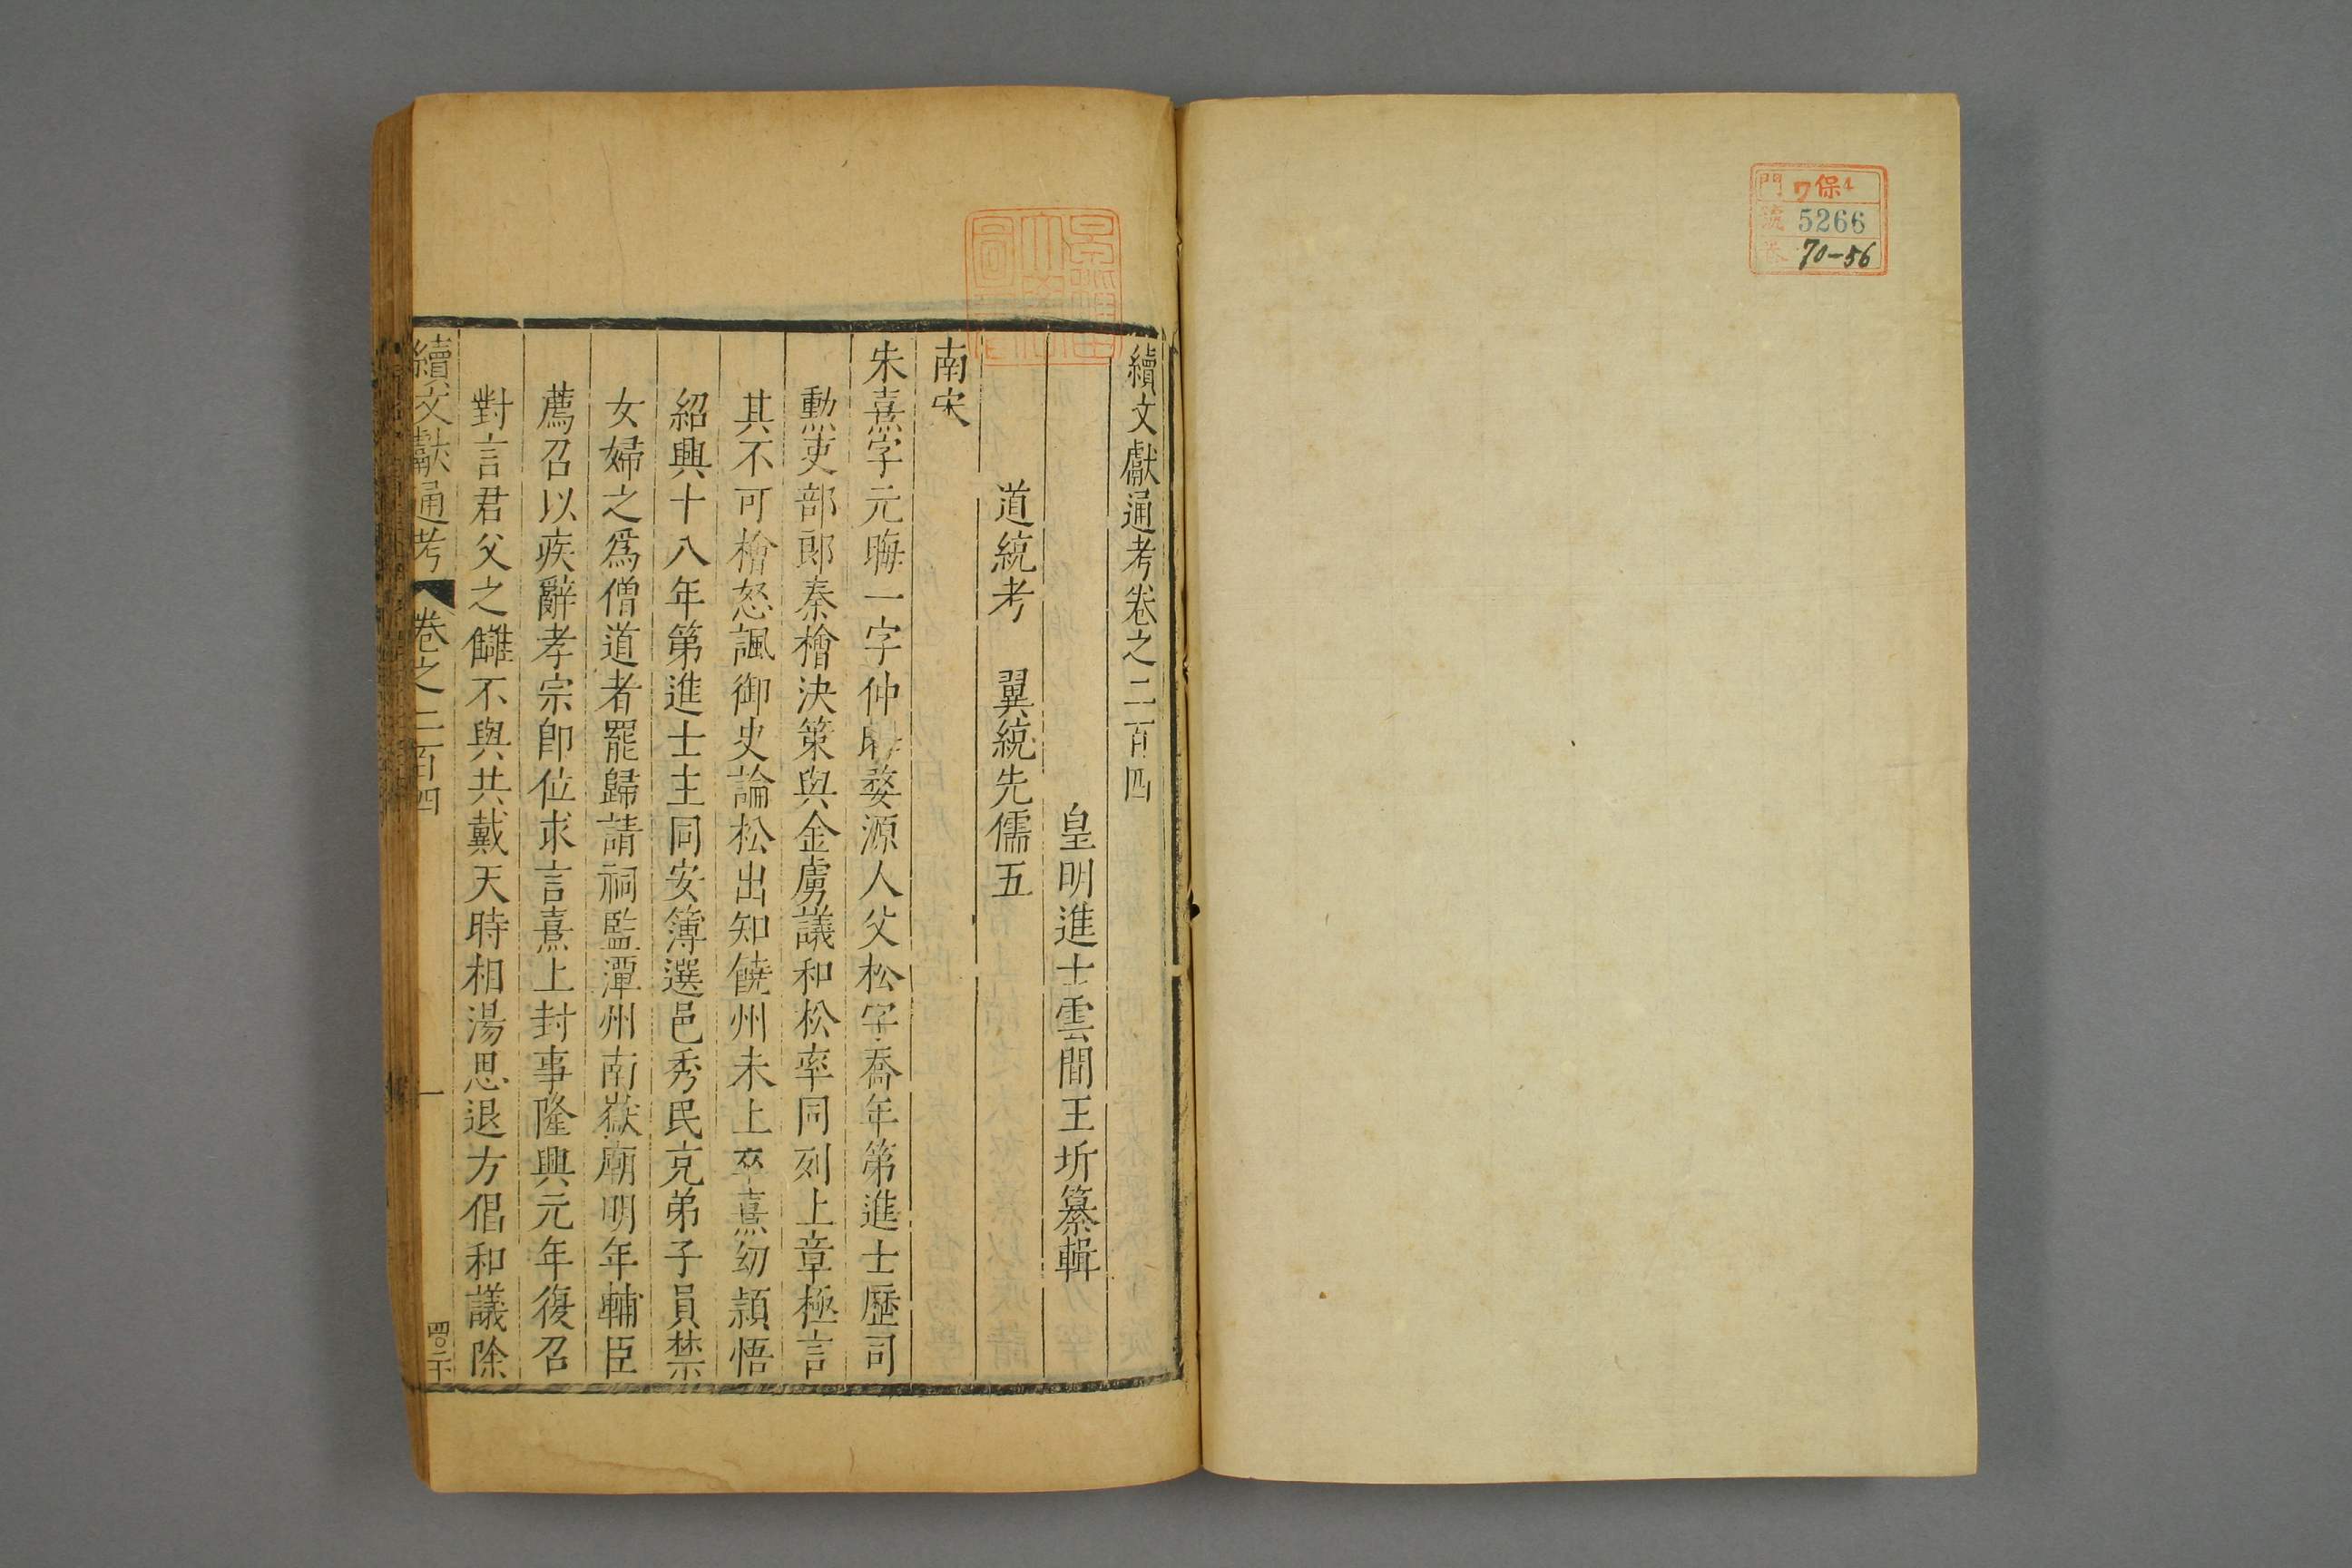 門 ワ保4
號 5266
巻 70-56
續文獻通考卷之二百四
皇明進士雲間王圻纂輯
道統考 翼統先儒五
南宋
朱熹字元晦一字仲晦婺源人父松字喬年第進士歷司
勳吏部郎秦檜決策與金虜議和松率同列上章極言
其不可檜怒諷御史論松出知饒州未上卒熹幼穎悟
紹興十八年第進士主同安簿選邑秀民充弟子員禁
女婦之爲僧道者罷歸請祠監潭州南嶽廟明年輔臣
薦召以疾辭孝宗即位求言熹上封事隆興元年復召
對言君父之讎不與共戴天時相湯思退方倡和議除
續文獻通考 卷之二百四 一